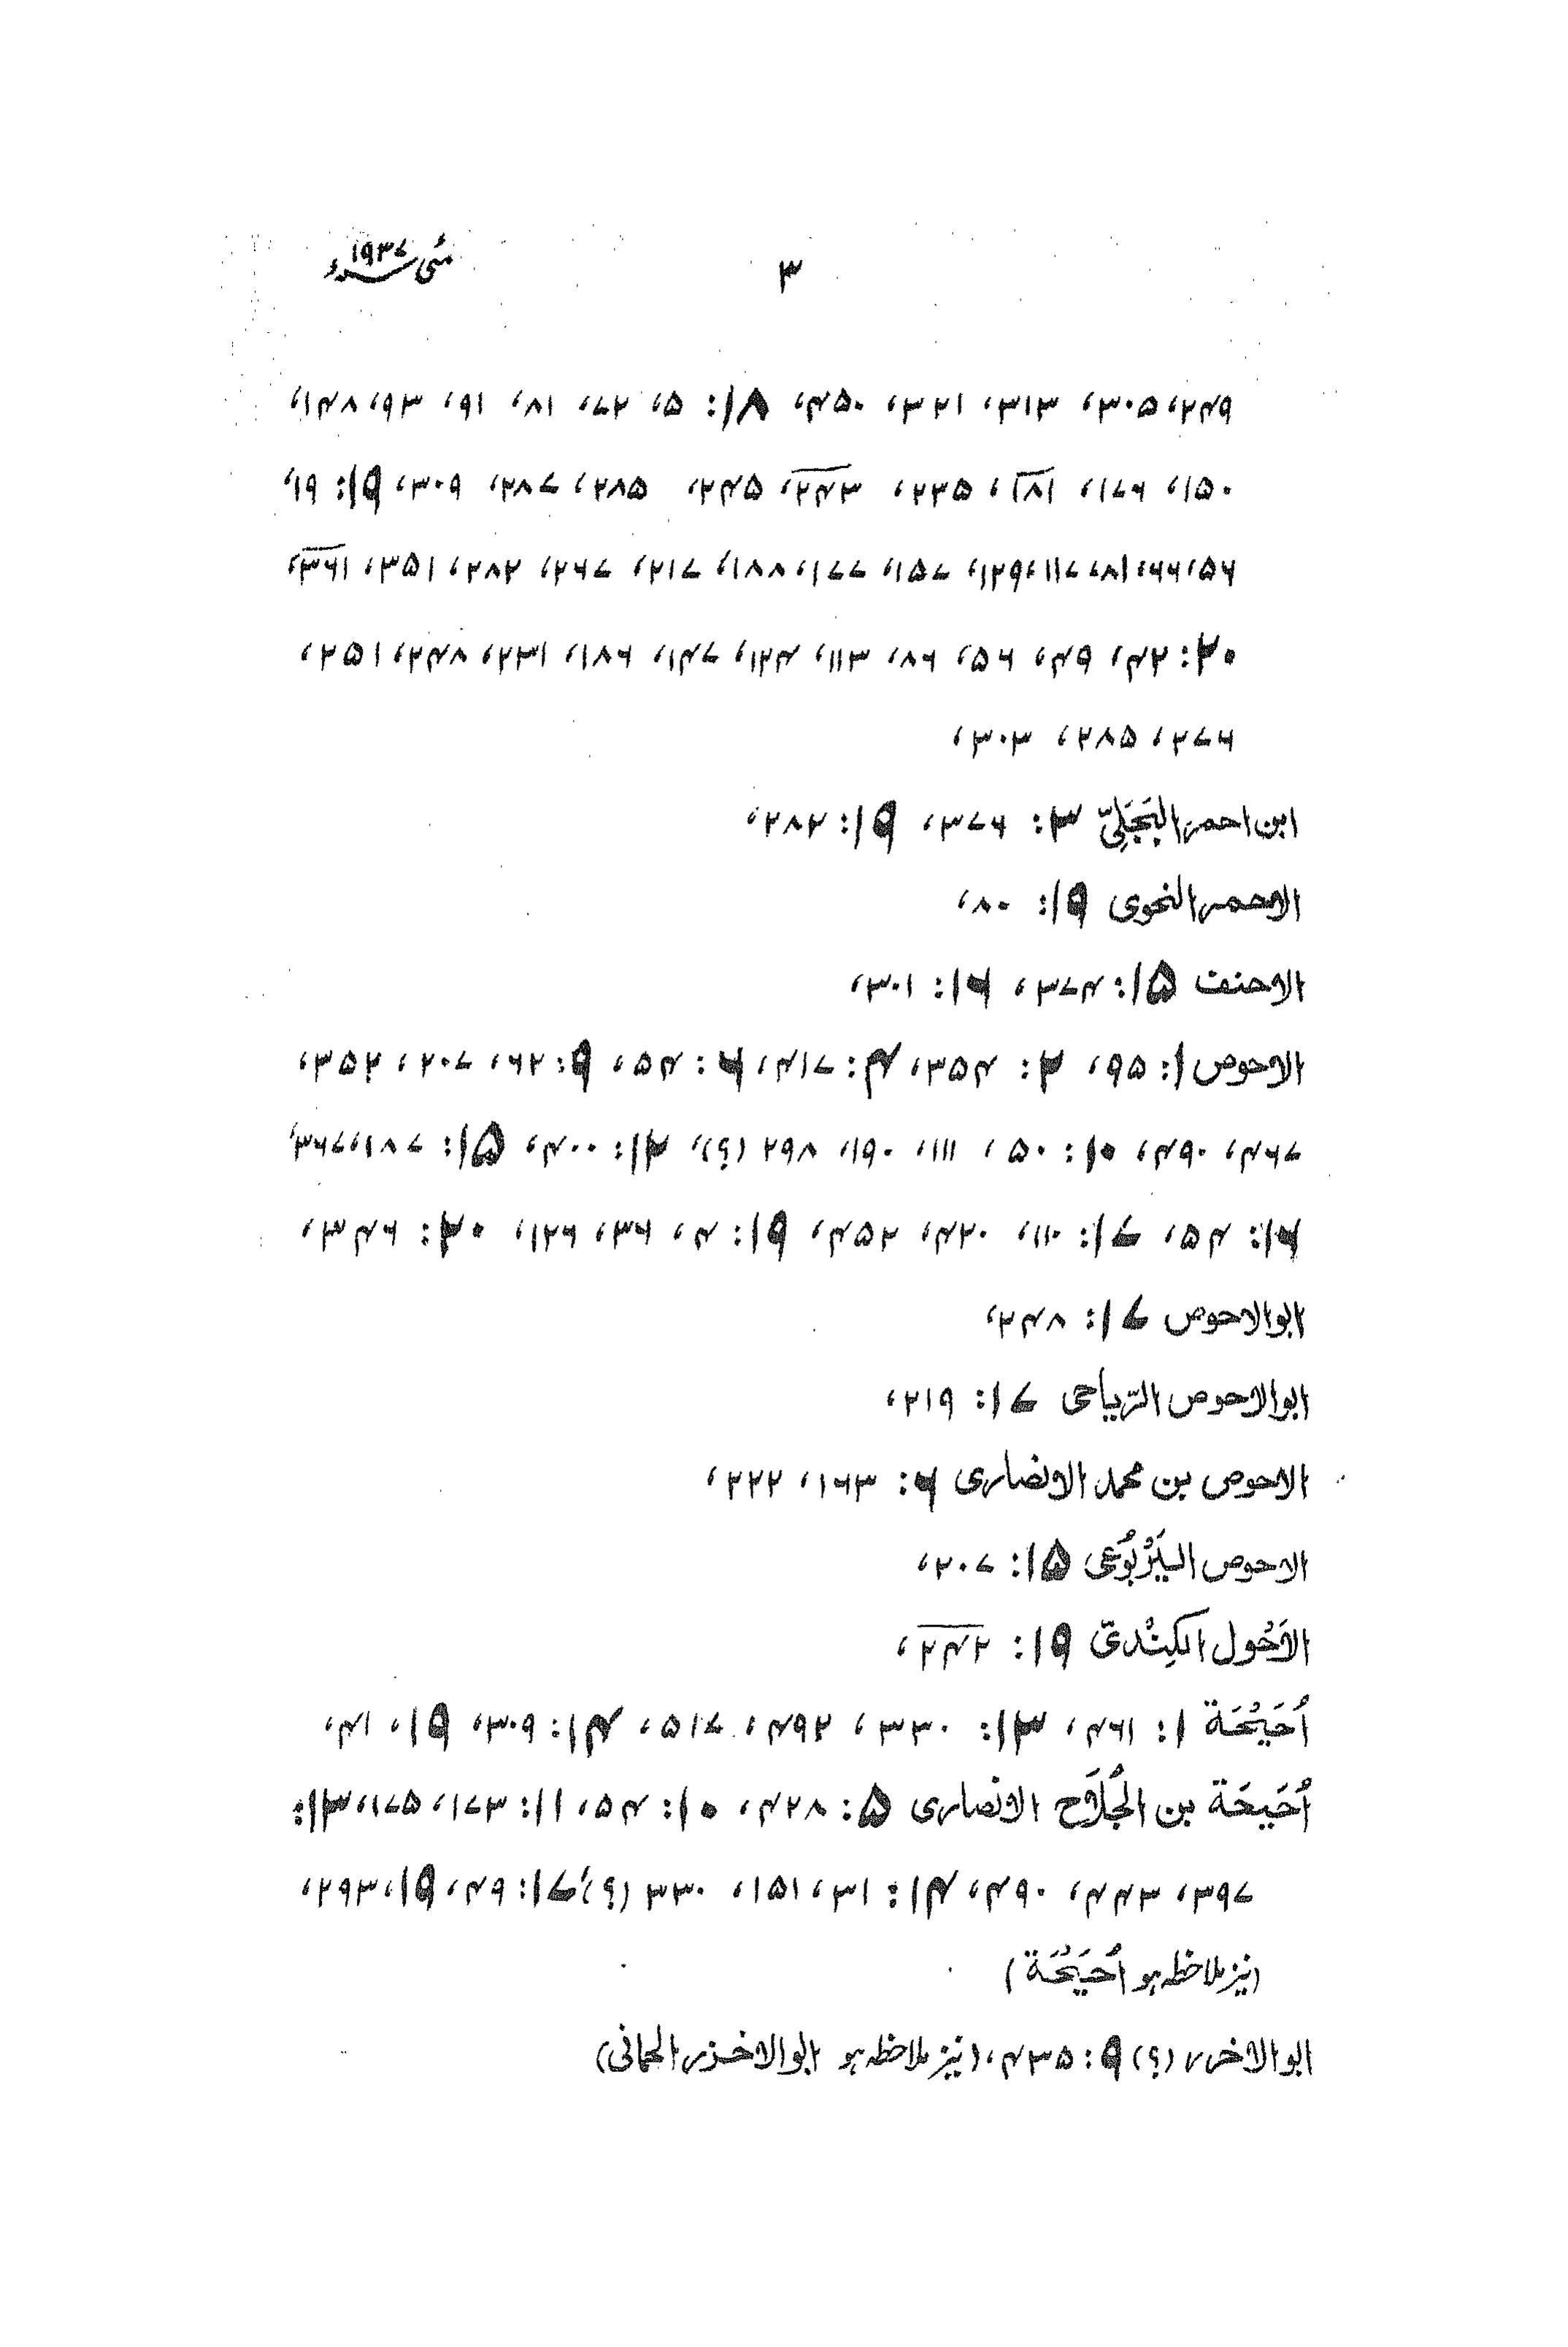 مئی ۱۹۳۷ء
۳
۲۴۹، ۳۰۵، ۳۱۳، ۳۲۱، ۴۵۰، ۱۸: ۵، ۷۲، ۸۱، ۹۱، ۹۳، ۱۴۸،
۱۵۰، ۱۷۶، ۱۸۱، ۲۳۵، ۲۴۳، ۲۴۵، ۲۸۵، ۲۸۷، ۳۰۹، ۱۹: ۱۹،
۵۶، ۶۶، ۸۱، ۱۱۷، ۱۲۹، ۱۵۷، ۱۷۷، ۱۸۸، ۲۱۷، ۲۶۷، ۲۸۲، ۳۵۱، ۳۶۱،
۲۰: ۴۲، ۴۹، ۵۶، ۸۶، ۱۱۳، ۱۲۴، ۱۴۷، ۱۸۶، ۲۳۱، ۲۴۸، ۲۵۱،
۲۷۶، ۲۸۵، ۳۰۳،
ابن احمر البَجَلِیّ ۳: ۳۷۶، ۱۹: ۲۸۲،
الاحمر النحوی ۱۹: ۸۰،
الاحنف ۱۵: ۳۷۴، ۱۶: ۳۰۱،
الاحوص ۱: ۹۵، ۲: ۳۵۴، ۴: ۴۱۷، ۶: ۵۴، ۹: ۶۲، ۲۰۷، ۳۵۲،
۴۶۷، ۴۹۰، ۱۰: ۵۰، ۱۱۱، ۱۹۰، ۲۹۸ (؟)، ۱۲: ۴۰۰، ۱۵: ۱۸۷، ۳۶۷،
۱۶: ۵۴، ۱۷: ۱۱۰، ۴۲۰، ۴۵۲، ۱۹: ۴، ۳۶، ۱۲۶، ۲۰: ۳۴۶،
ابو الاحوص ۱۷: ۲۴۸،
ابو الاحوص الرّیاحی ۱۷: ۲۱۹،
الاحوص بن محمد الانصاری ۶: ۱۶۳، ۲۲۲،
الاحوص الیَرْبُوعی ۱۵: ۲۰۷،
الاَحْوَل الکِنْدیّ ۱۹: ۲۴۲،
اُحَیْحَة ۱: ۴۶۱، ۱۳: ۳۳۰، ۴۹۲، ۵۱۷، ۱۴: ۳۰۹، ۱۹، ۴۱،
اُحَیحَة بن الجُلَاَح الانصاری ۵: ۴۲۸، ۱۰: ۵۴، ۱۱: ۱۷۳، ۱۷۵، ۱۳:
۳۹۷، ۴۴۳، ۴۹۰، ۱۴: ۳۱، ۱۵۱، ۳۳۰ (؟)، ۱۷: ۴۹، ۱۹، ۲۹۳،
(نیز ملاحظہ ہو اُحَیْحَة)
ابو الاخرر (؟) ۹: ۴۳۵، (نیز ملاحظہ ہو ابو الاخزر الحمانی)